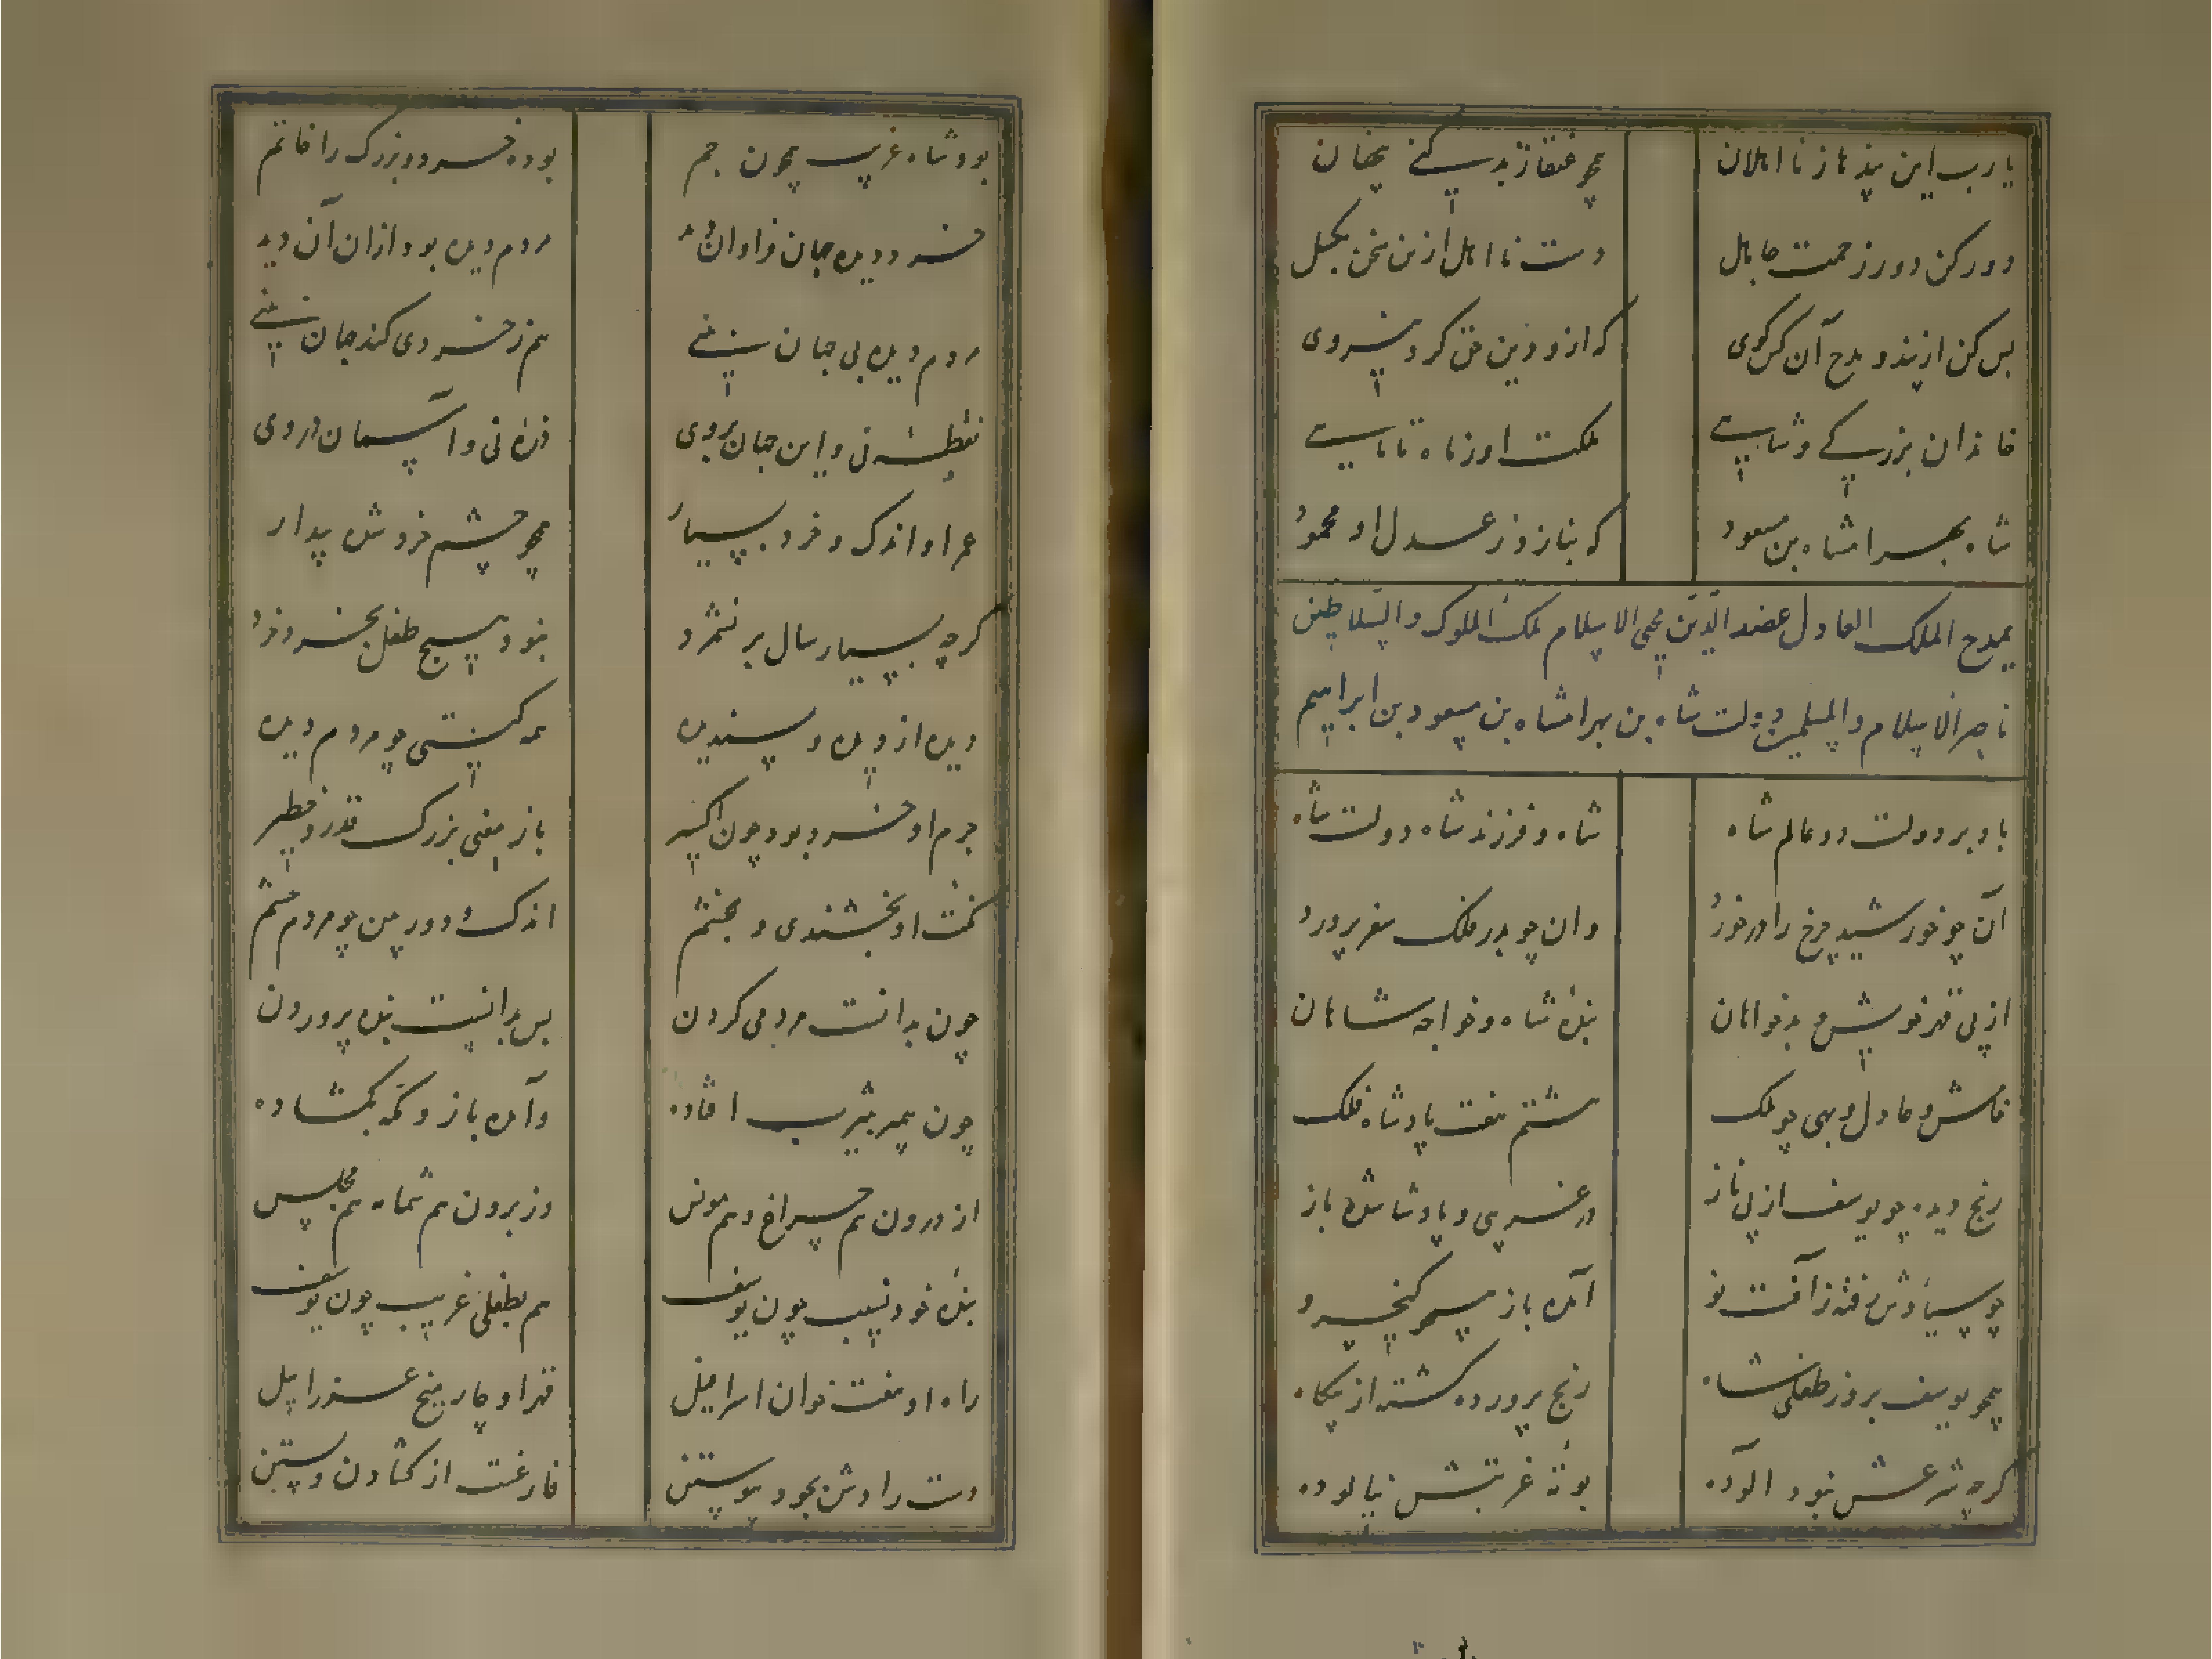 یارب این پندها ز نا اهلان
همچو عنقا ز بد کنی پنهان
دور کن دور زحمت جاهل
دست نا اهل ازین سخن بگسل
بس کن از پند و مدح آن کس کوی
که ازو دین حق کرد نیروی
خاندان بزرگی و شاهی
ملکت او ز ماه تا ماهی
شاه بهرامشاه بن مسعود
که بنازد ز عدل او محمود
یمدح الملک العادل عضد الدین محیی الاسلام ملک الملوک والسلاطین
ناصر الاسلام والمسلمین دولت شاه بن بهرامشاه بن مسعود بن ابراهیم
باد بر دولت دو عالم شاه
شاه و فرزند شاه دولت شاه
آن چو خورشید چرخ را درخورد
وان چو بدر فلک سفر پرورد
از پی قهر خویش و بدخواهان
بنده شاه و خواجه شاهان
فاش و عادل و بهی چو ملک
هشتم هفت پادشاه فلک
رنج دیده چو یوسف از پی ناز
در غریبی و پادشا شده باز
چو سیاوش رفته ز آفت نو
آمده باز همچو کیخسرو
همچو یوسف بروز طفلی شاه
رنج پرورده گشته از یکاه
گرچه شرعش نبود آلوده
بوته غربتش نیالوده
بود شاه غریب همچون جم
بوده خرد و بزرگ را خاتم
خرد دیده جهان فراوان دید
مردم دیده بود ازان آن دید
مردم دیده بی جهان بینی
هم ز خردی کند جهان بینی
نقطه نی و این جهان بروی
ذره نی و آسمان در وی
عمر او اندک و خرد بسیار
همچو چشم خروش بیدار
گرچه بسیار سال بر نشمرد
نبود هیچ طفل بخرد خرد
دیده از دیده و پسندیده
همه گیتی چو مردم دیده
جرم او خرد بود چون اکسیر
باز معنی بزرگ قدر و خطیر
گفت او بخشندی و بخشم
اندک و دوربین چو مردم چشم
چون بدانست مردمی کردن
بس بدانست بنده پروردن
چون پیمبر بیثرب افتاده
وآمده باز و مکه بگشاده
از درون هم چراغ و هم مونس
وز برون هم شماه هم مجلس
بنده خود نسیب چون یوسف
هم بطفلی غریب چون یوسف
راه او هفت خوان اسرافیل
قهر او چار میخ عزراییل
دست رادش بجود پیوستن
فارغست از گشادن و بستن